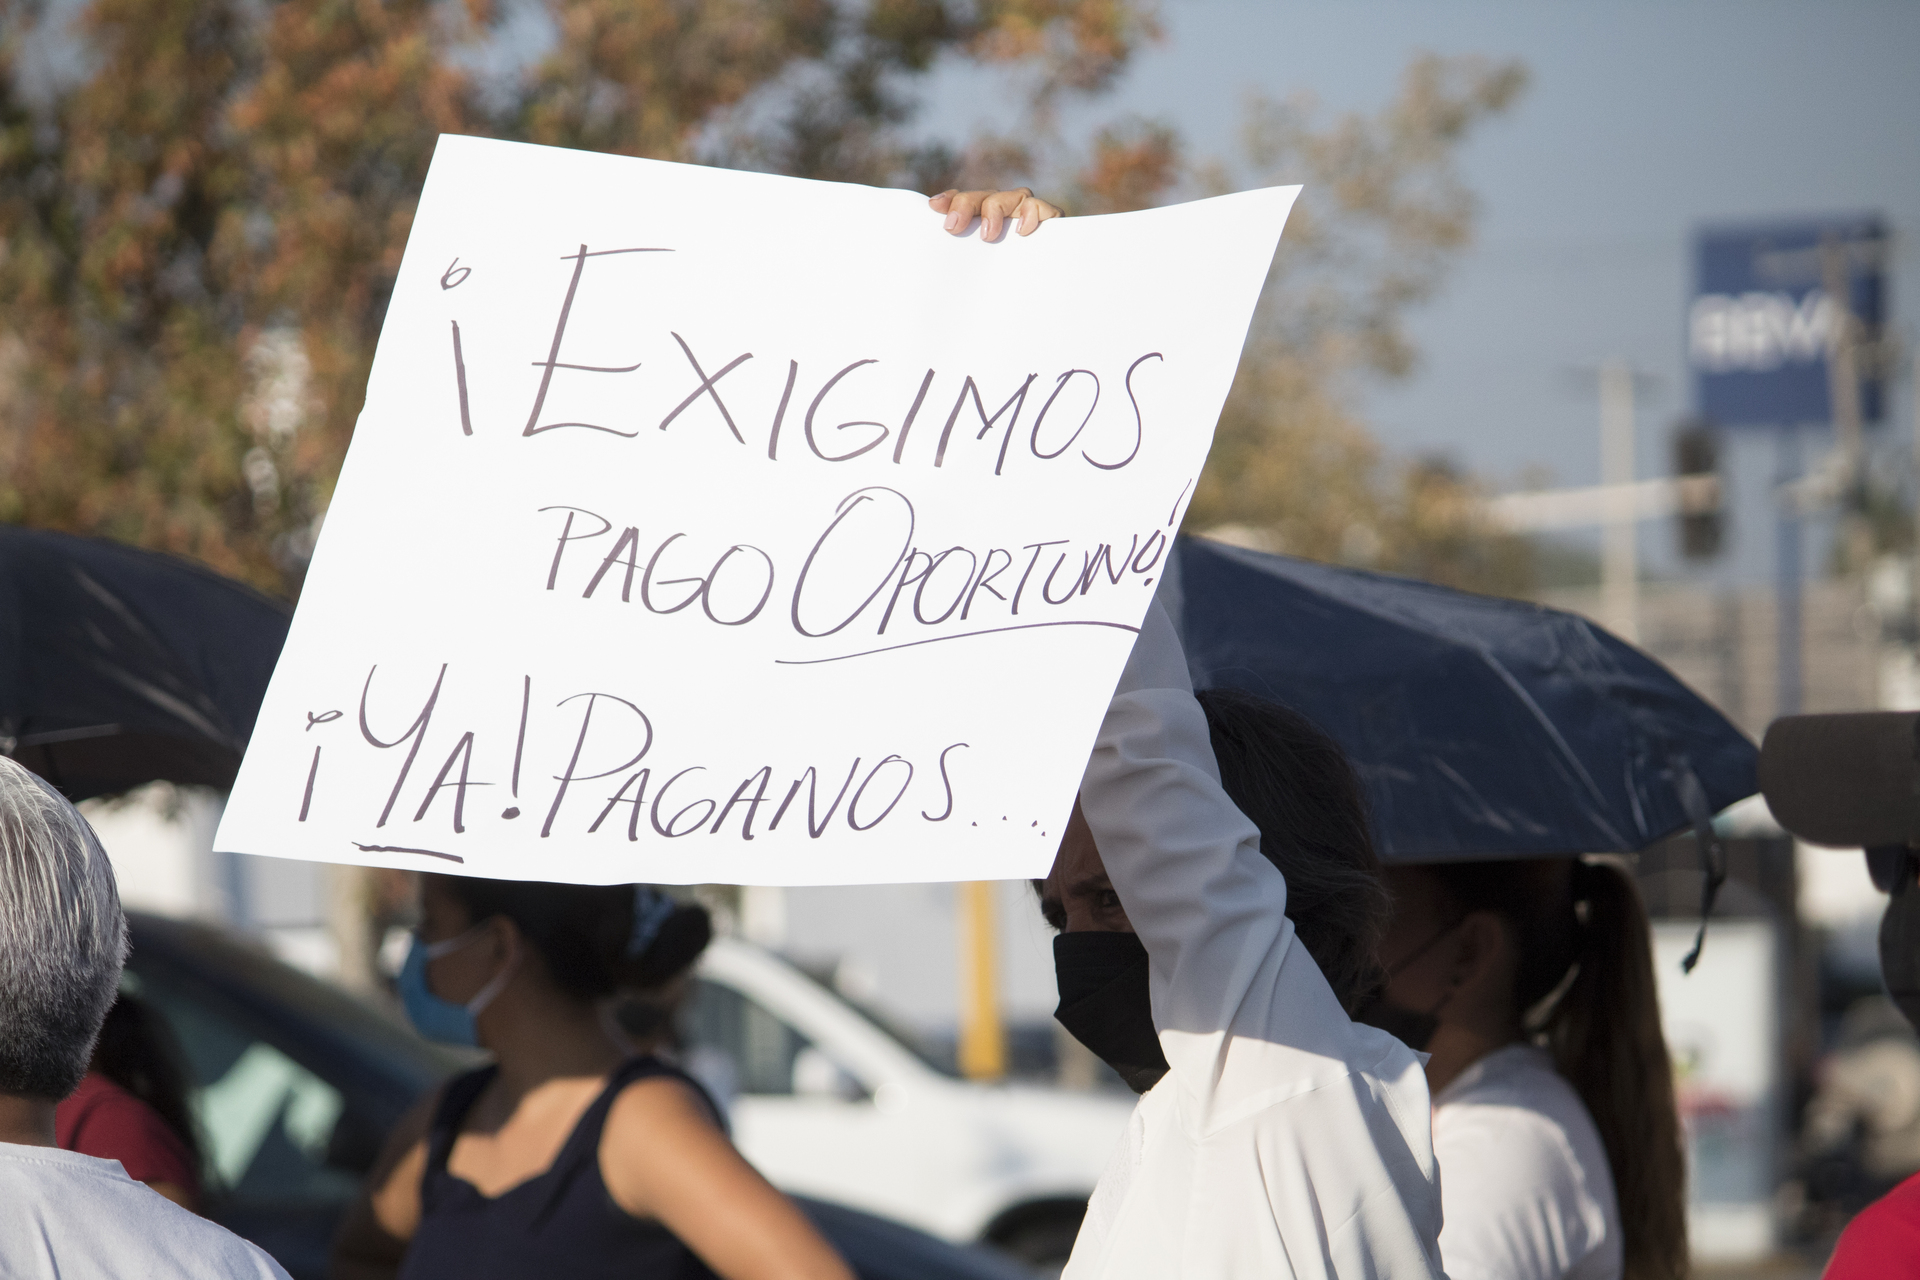 ¡EXIGIMOS
PAGO OPORTUNO!
¡YA! PAGANOS...
BBVA